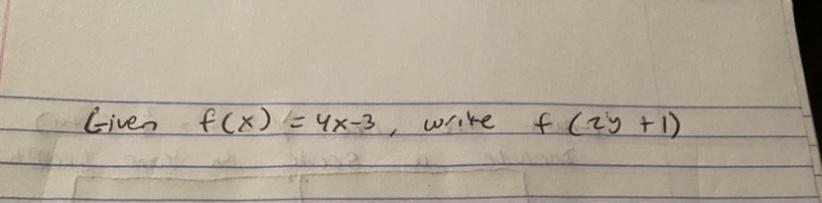 Given f(x) = 4x-3, write f (2y + 1)